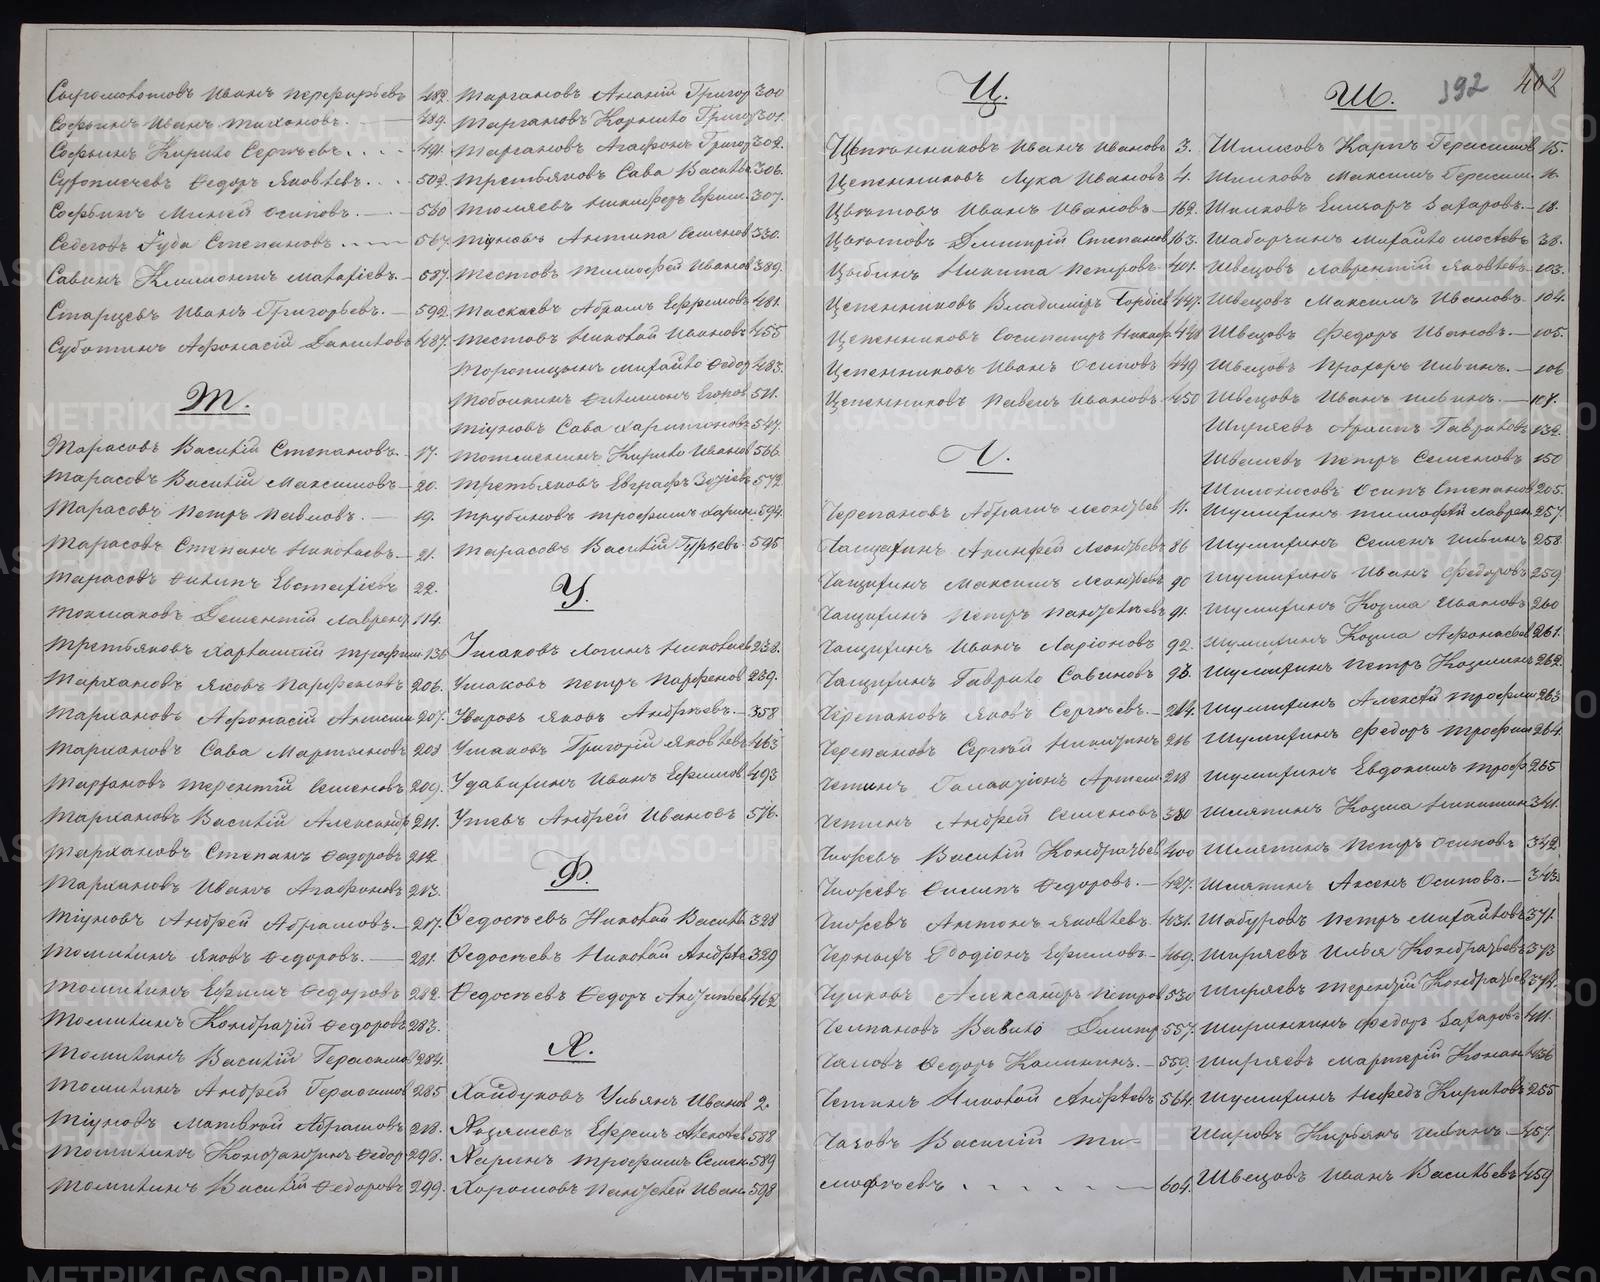 Сыромолотовъ Иванъ Перфирьевъ 482.
Софьинъ Иванъ Тихоновъ. 489.
Софьинъ Кирило Сергѣевъ. 491.
Федоръ Яковлевъ. 502.
Софьинъ Миней Осиповъ. 530
Степановъ 567.
Савинъ Климонтъ Матвѣевъ. 587.
Старцевъ Иванъ Григорьевъ. 592.
Суботинъ Афонасій Даниловъ 487.
Т.
Тарасовъ Василій Степановъ. 17.
Тарасовъ Василій Максимовъ 20.
Тарасовъ Петръ Павловъ. 19.
Тарасовъ Степанъ Николаевъ. 21.
Тарасовъ Филипъ Евстафіевъ 22.
Токмаковъ Дементій Лаврент 114.
Третьяковъ Харлампій Трофим. 136
Тархановъ Яковъ Парфеновъ 206.
Тархановъ Афонасій Анисим 207.
Тархановъ Сава Мартыновъ 208
Тархановъ Терентій Семеновъ 209.
Тархановъ Василій Александр 211.
Тархановъ Степанъ Федоровъ 212.
Тархановъ Иванъ Агафоновъ 213.
Тіуновъ Андрей Абрамовъ. 217.
Томилинъ Яковъ Федоровъ. 281.
Томилинъ Ефимъ Федоровъ 282.
Томилинъ Кондратій Федоровъ 283.
Томилинъ Василій Герасимов 284.
Томилинъ Андрей Герасимов 285
Тіуновъ Матвей Абрамовъ 218.
Томилинъ Константинъ Федор 298.
Томилинъ Василій Федоровъ 299.
Таргановъ Ананій Григор 300
Таргановъ Корнило Григор 301.
Таргановъ Агафонъ Григор 302.
Третьяковъ Сава Василье 306.
Тюляевъ Никифоръ Ефим. 307.
Тіуновъ Антипа Семенов 330.
Тестовъ Тимофей Иванов 389.
Таскаевъ Абрамъ Ефремовъ 481.
Тестовъ Николай Ивановъ 455
Торопицынъ Михайло Федор 483.
Филимонъ Егоров 511.
Тіуновъ Сава Харитоновъ 547.
Кирило Иванов 566.
Третьяковъ Евграфъ 572
Трубиновъ Трофимъ Харит. 594.
Тарасовъ Василій Гурьевъ 595
У.
Ушаковъ Логинъ Николаев 238.
Ушаковъ Петръ Парфенов 239.
Уваровъ Яковъ Андреевъ. 358
Ушаковъ Григорій Яковлевъ 463
Удавихинъ Иванъ Ефимов 493
Утевъ Андрей Ивановъ 576.
Ф.
Федосѣевъ Николай Василье 328
Федосѣевъ Николай Андрѣе 329
Федосѣевъ Федоръ 462
Х.
Хайдуковъ Ульянъ Иванов 2.
Ефремъ 588
Харинъ Трофимъ Семен 589
Хорошовъ Пантелей Иван 598
Ц.
Цепенниковъ Иванъ Ивановъ 3.
Цепенниковъ Лука Ивановъ 4.
Цвѣтовъ Иванъ Ивановъ 162.
Цвѣтовъ Дмитрій Степанов 163.
Цыбинъ Никита Петровъ 401.
Цепенниковъ Владиміръ 447.
Цепенниковъ Сосипатръ Никаф. 448
Цепенниковъ Иванъ Осиповъ 449
Цепенниковъ Павелъ Ивановъ 450
Ч.
Черепановъ Абрамъ Леонтьев 11.
Чащихинъ Акинфей Леонтьевъ 86
Чащихинъ Максимъ Леонтьевъ 90
Чащихинъ Петръ Пантелѣевъ 91.
Чащихинъ Иванъ Ларіоновъ 92.
Чащихинъ Гаврило Савиновъ 93.
Черепановъ Яковъ Сергѣевъ. 214.
Черепановъ Сергѣй Никитинъ 216
Чепинъ Галактіонъ Артем 218
Чепинъ Андрей Семеновъ 380
Василій Кондратьев 400
Филипъ Федоровъ. 427.
Антонъ Яковлевъ. 431.
Черныхъ Родіонъ Ефимовъ 469.
Чуйковъ Александръ Петров 530
Чепановъ Вавило Дмитр 557.
Чаловъ Федоръ Калининъ. 559.
Чепинъ Николай Андреевъ 564.
Чаловъ Василій Ти-
мофѣевъ 604.
192 402
Ш.
Шишковъ Карпъ Герасимов 15.
Шишковъ Максимъ Герасим. 16.
Шишковъ Елизаръ Захаровъ. 18.
Шаборчинъ Михайло 38.
Швецовъ Лаврентій Яковлевъ 103.
Швецовъ Максимъ Ивановъ. 104.
Швецовъ Федоръ Ивановъ. 105.
Швецовъ Прохоръ Ильинъ. 106
Швецовъ Иванъ Ильинъ. 108.
Ширяевъ Архипъ Гавриловъ 132.
Швалевъ Петръ Семеновъ 150
Шилоносовъ Осипъ Степанов 205.
Шумихинъ Тимофей Лаврен. 257.
Шумихинъ Семенъ Ильинъ 258
Шумихинъ Иванъ Федоровъ 259
Шумихинъ Козма Ивановъ 260
Шумихинъ Козма Афонасьев 261.
Шумихинъ Петръ Козминъ 262.
Шумихинъ Алексѣй Трофим 263
Шумихинъ Федоръ Трофим 264.
Шумихинъ Евдокимъ Троф 265
Шляпинъ Козма Никитин 341.
Шляпинъ Петръ Осиповъ 342.
Шляпинъ Аксенъ Осиповъ. 343.
Шабуровъ Петръ Михайловъ 371.
Ширяевъ Илья Кондратьевъ 373
Ширяевъ Терентій Кондратьев 374.
Ширинкинъ Федоръ Захаровъ 411.
Ширяевъ Мартерій Конан 436
Шумихинъ Нефедъ Кириловъ 255
Шировъ Кирьянъ Ильинъ 457.
Швецовъ Иванъ Васильевъ 459
METRIKI.GASO-URAL.RU